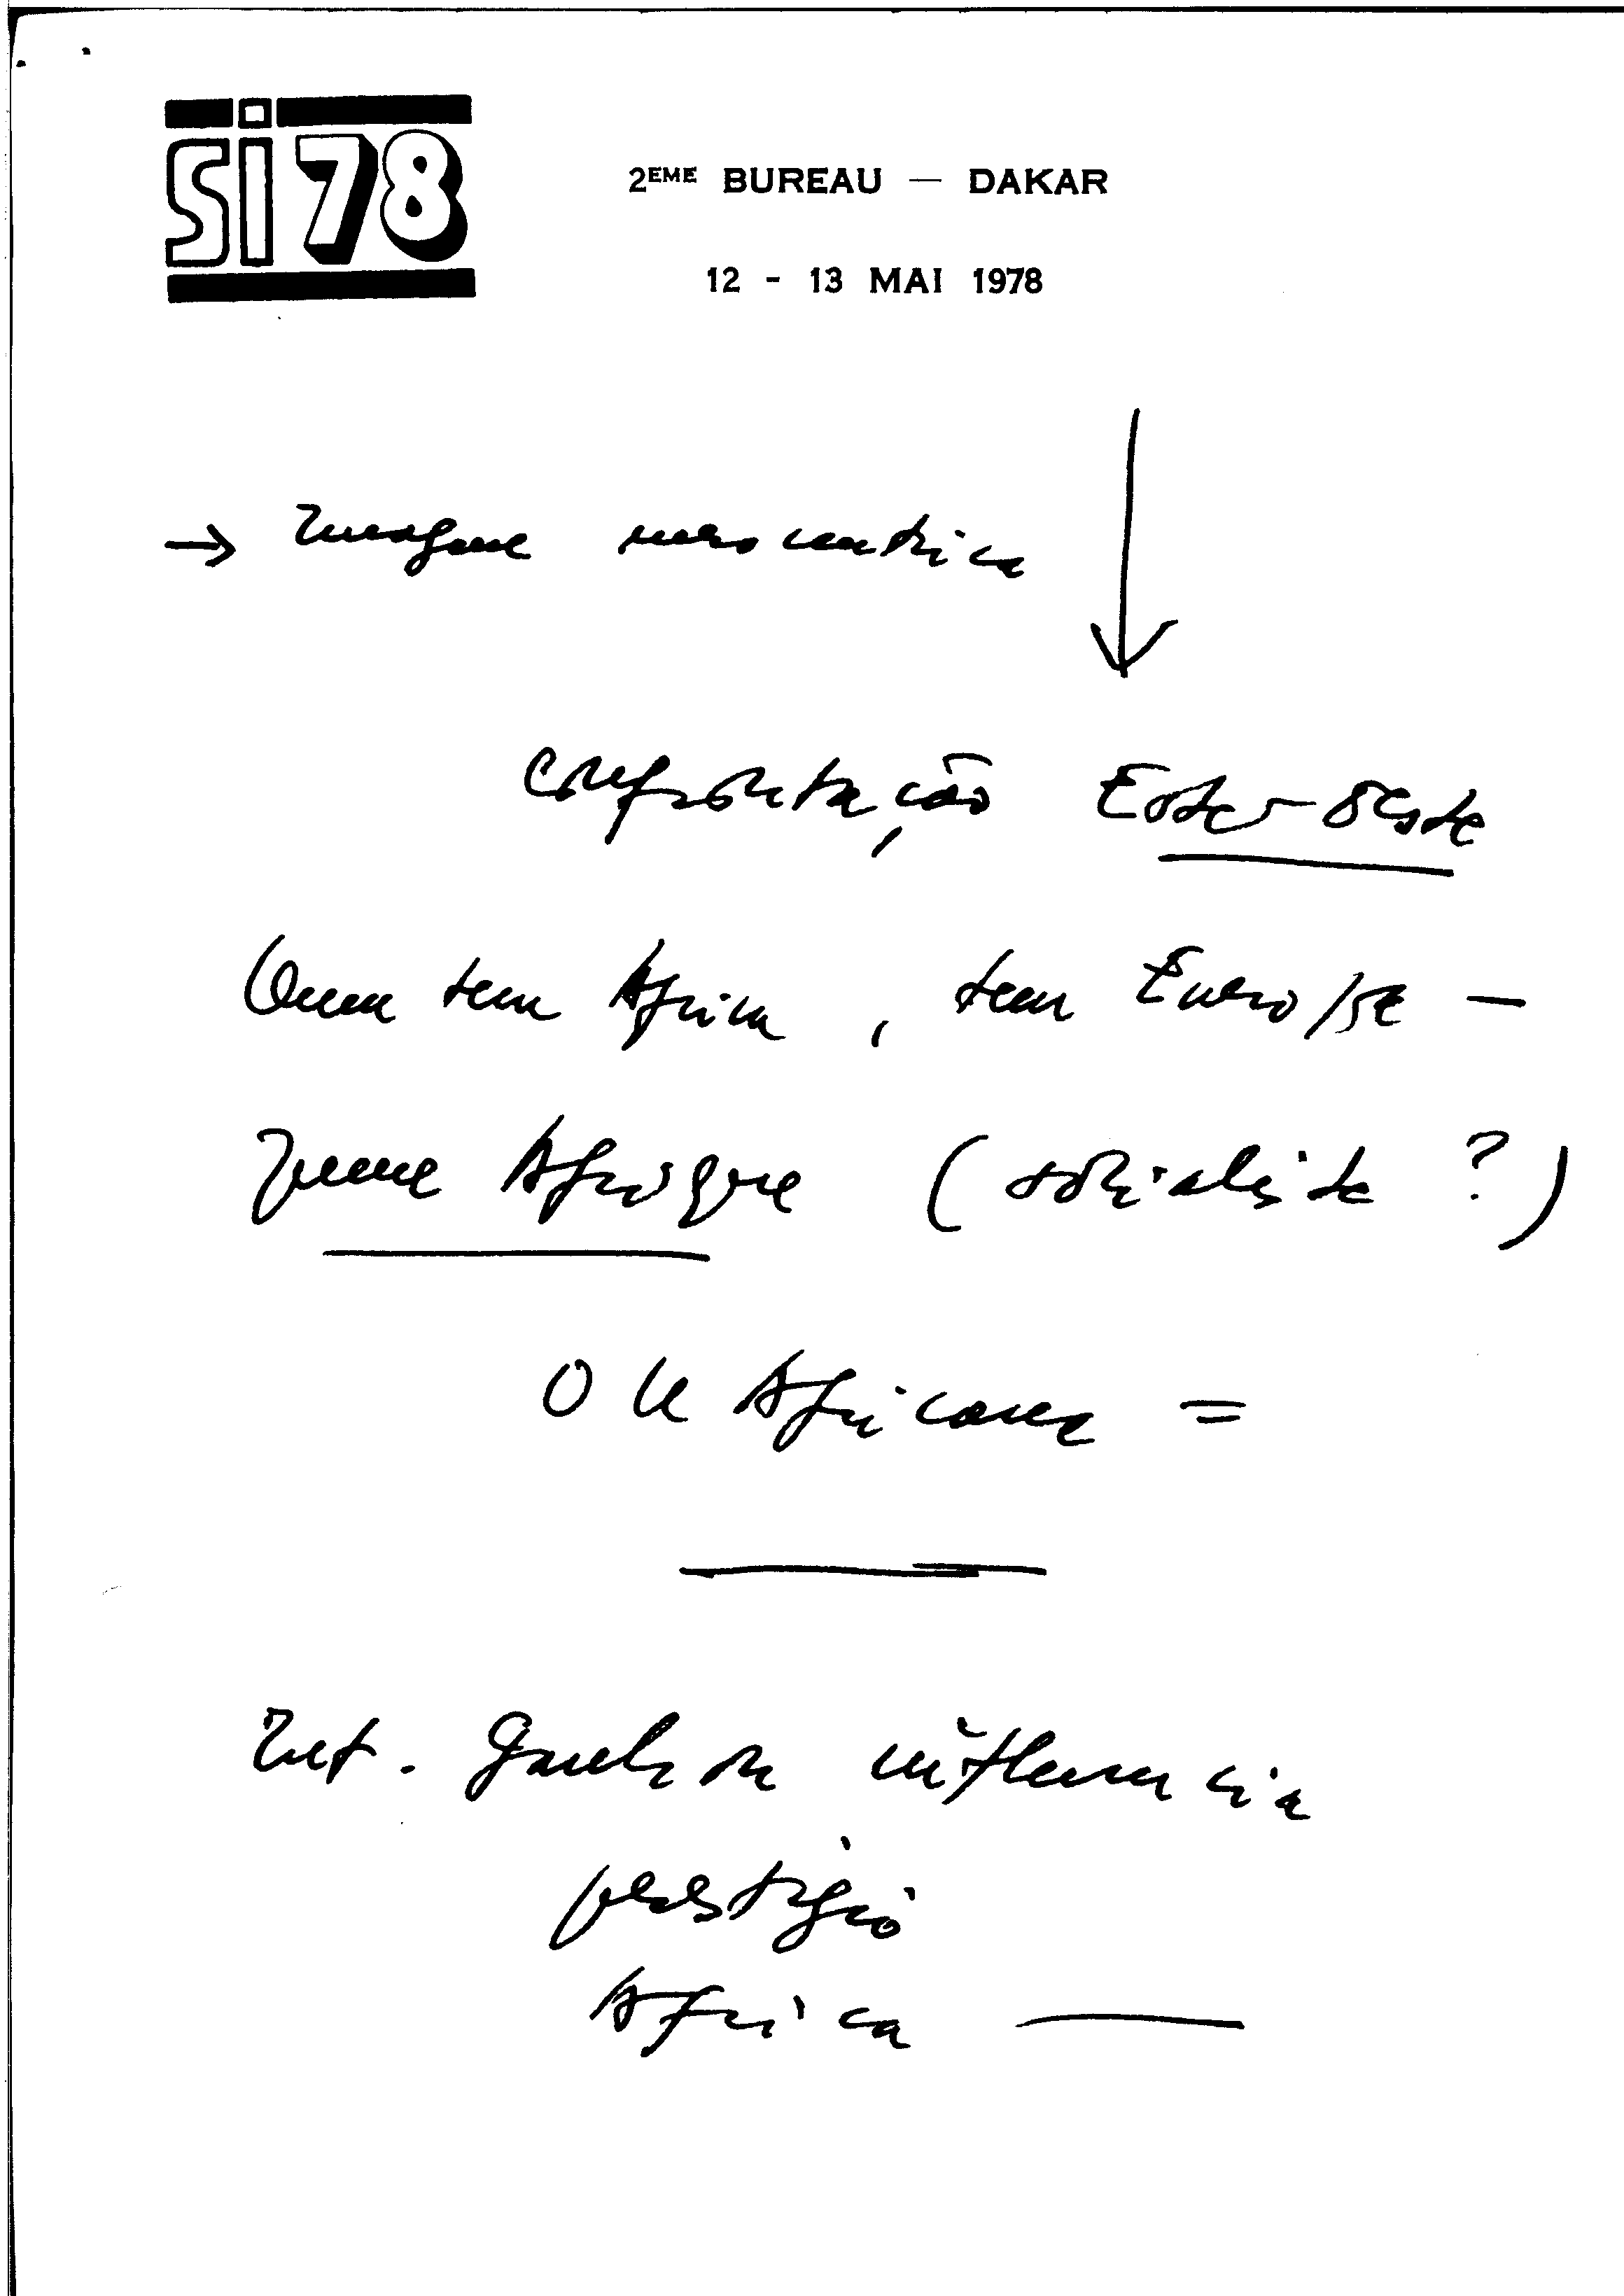 Si 78
2EME BUREAU — DAKAR
12 - 13 MAI 1978
→ Imagem
confrontação Este-Oeste
Quem tem Africa, tem Europa —
Jeune Afrique (socialista ?)
Africana =
Int. Ganhar influencia
prestigio
Africa —